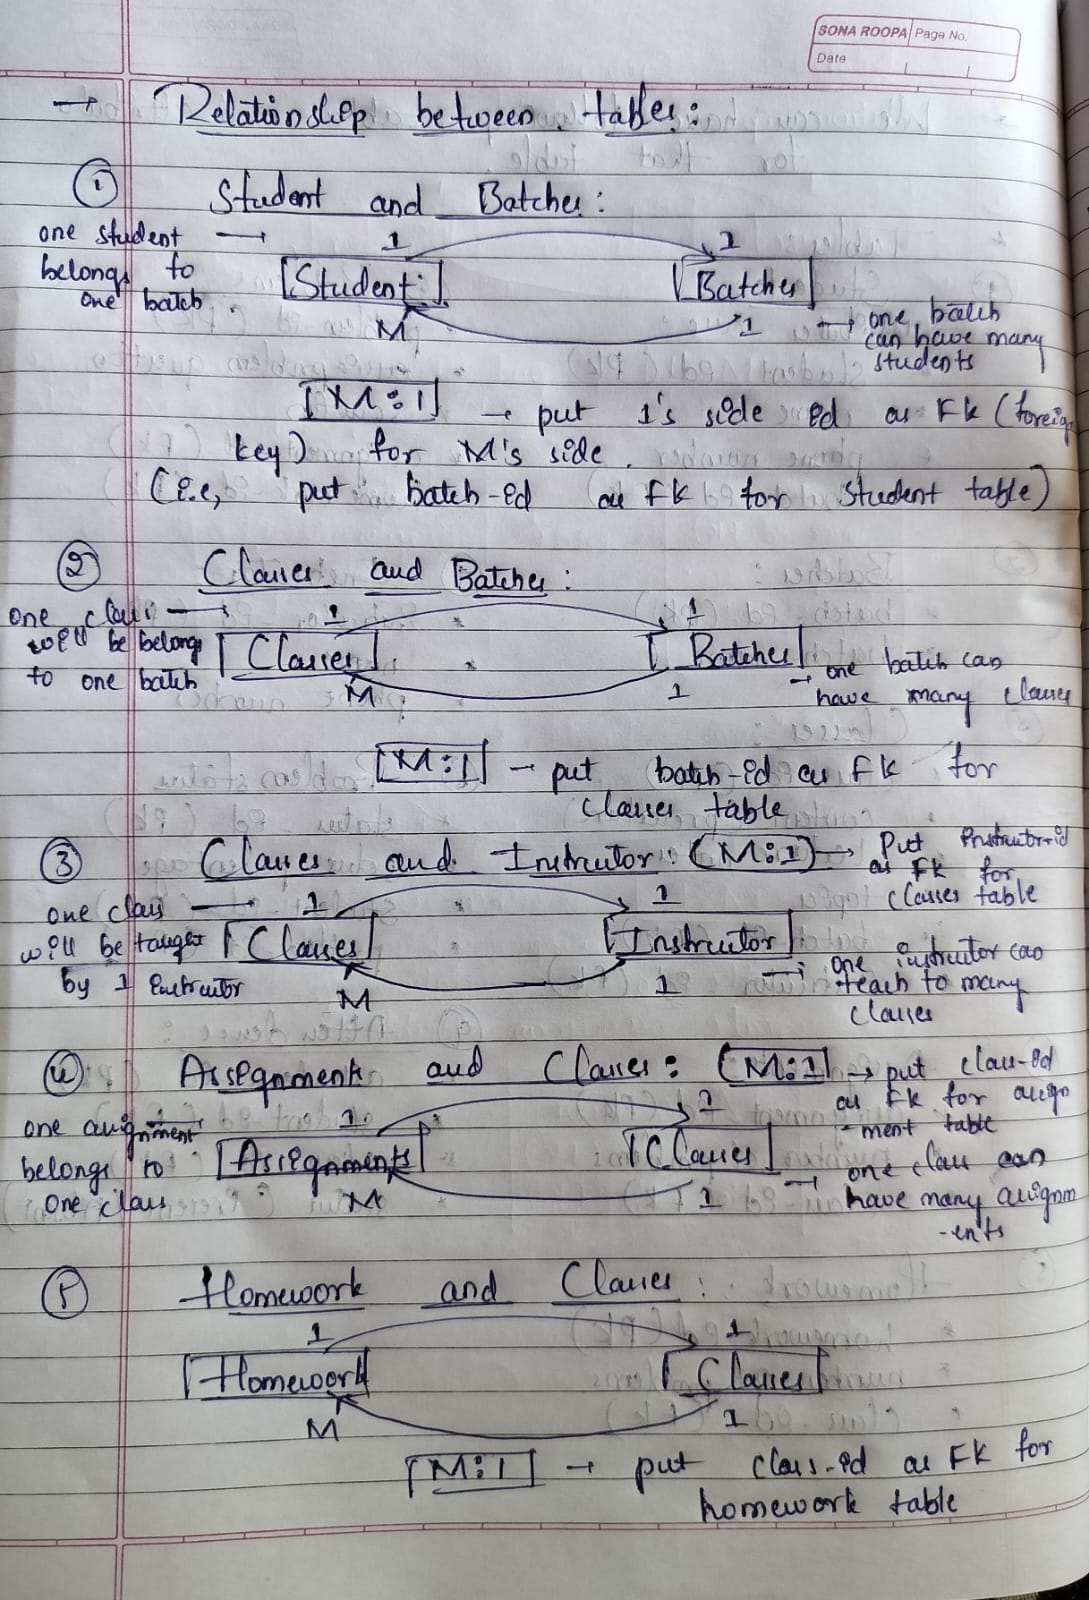 SONA ROOPA Page No.
Date
→ Relationship between tables:
① Student and Batches:
one student →
belongs to
one batch.
1 1
[Student] [Batches]
M 1
→ one batch
can have many
students
[M:1] → put 1's side id as FK (foreign
key) for M's side.
(i.e, put batch-id as FK for student table)
② Classes and Batches:
one class →
will be belongs
to one batch
1 1
[Classes] [Batches]
M 1
→ one batch can
have many classes
[M:1] → put batch-id as FK for
classes table
③ Classes and Instructor: (M:1) → Put instructor-id
as FK for
classes table
one class →
will be taught
by 1 instructor
1 1
[Classes] [Instructor]
M 1
→ one instructor can
teach to many
classes
④ Assignments and Classes: (M:1) → put class-id
as FK for assign
-ment table
one assignment
belongs to
one class
1 1
[Assignments] [Classes]
M 1
→ one class can
have many assignm
-ents
⑤ Homework and Classes:
1 1
[Homework] [Classes]
M 1
[M:1] → put class-id as FK for
homework table